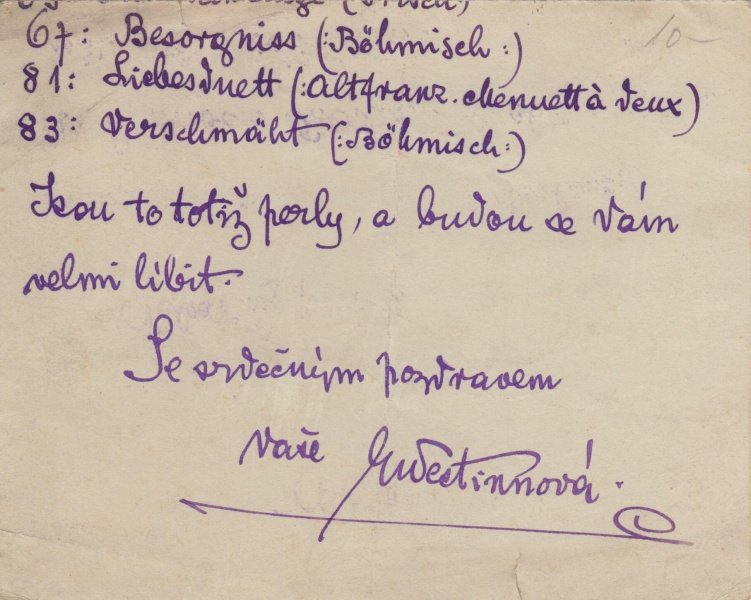 67: Besorgniss (:Böhmisch:)
10-
81: Liebesduett (:altfranz. Menuett à deux)
83: Verschmäht (:Böhmisch:)
Jsou to totiž perly, a budou se Vám
velmi líbit.
Se srdečným pozdravem
Vaše EmDestinnová.